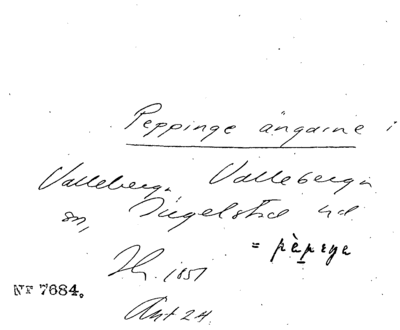 Peppinge ängarne i
Valleberga Valleberga
sn, Ingelstad hd
= pèpeŋa
Hr. 1851
Nr 7684.
Akt 24